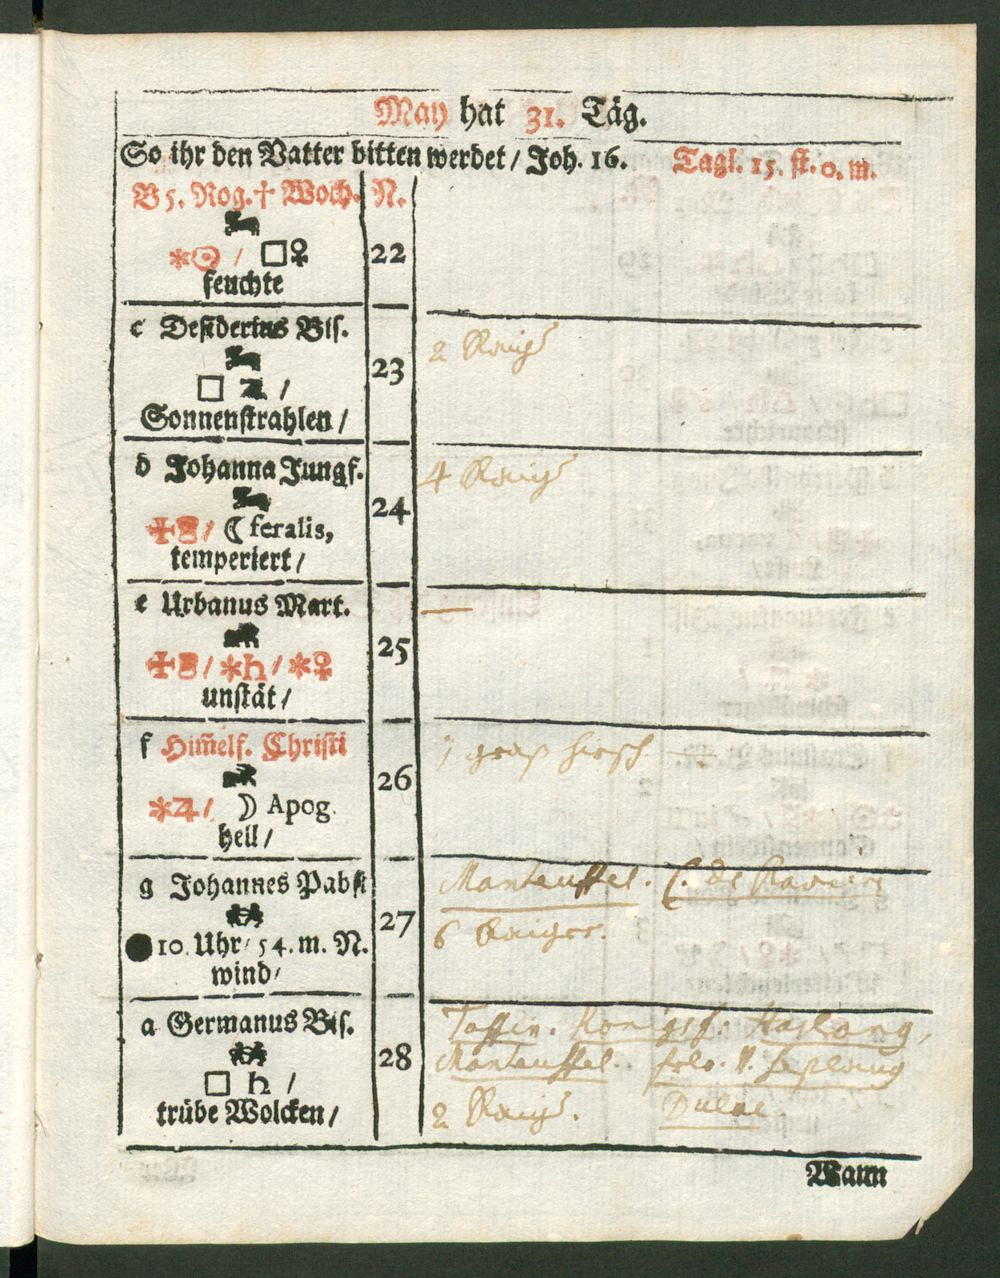 May hat 31. Täg.
So ihr den Vatter bitten werdet / Joh. 16. Tagl. 15. st. 0. m.
B 5. Rog. † Woch. N.
⚹☉ / □♀ 22
feuchte
c Desiderius Bis.
2
23
□ ♃ /
Sonnenstrahlen /
d Johanna Jungf.
4
24
/ ☾ feralis,
temperiert /
e Urbanus Mart.
—
25
/ ⚹♄ / ⚹♀
unstät /
f Him̃elf. Christi
26
⚹♃ / ☽ Apog.
hell /
g Johannes Pabst
Manteuffel.
27
6
●10. Uhr / 54. m. N.
wind /
a Germanus Bis.
Taffin. Königsf. Haslang,
28
Manteuffel.
□ ♄ /
trübe Wolcken /
2
Wann